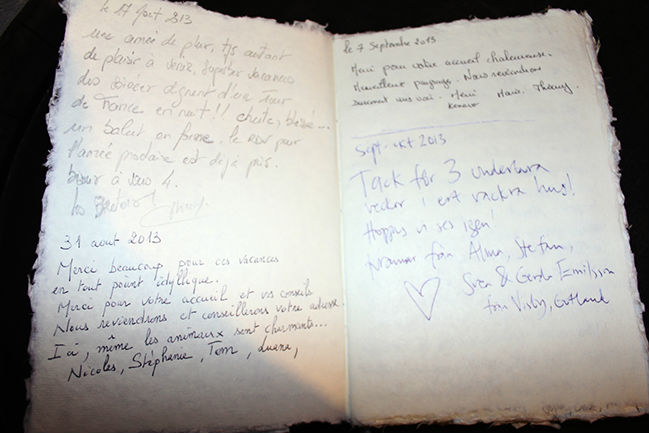 le 17 Août 2013
une année de plus, tjs autant
de plaisir à venir, superbes vacances
des soirées dignent d'une Tour
de France en nuit!! chute, blessé...
un balcon en forme. le RDV pour
l'année prochaine est déjà pris.
bisous à vous 4.
les
31 aout 2013
Merci beaucoup pour ces vacances
en tout point idyllique.
Merci pour votre accueil et vos conseils
Nous reviendrons et conseillerons votre adresse.
Ici, même les animaux sont charmants...
Nicolas, Stéphanie, Tom, Luana,
le 7 Septembre 2013
Merci pour votre accueil chaleureuse.
Merveilleux paysages. Nous reviendrons
surement vous voir. Merci Marie. Thierry.
Sept-okt 2013
Tack för 3 underbara
veckor i ert vackra hus!
Hoppas vi ses igen!
Kramar från Alma, Stefan,
Svea & Gerda Emilsson
från Visby, Gotland